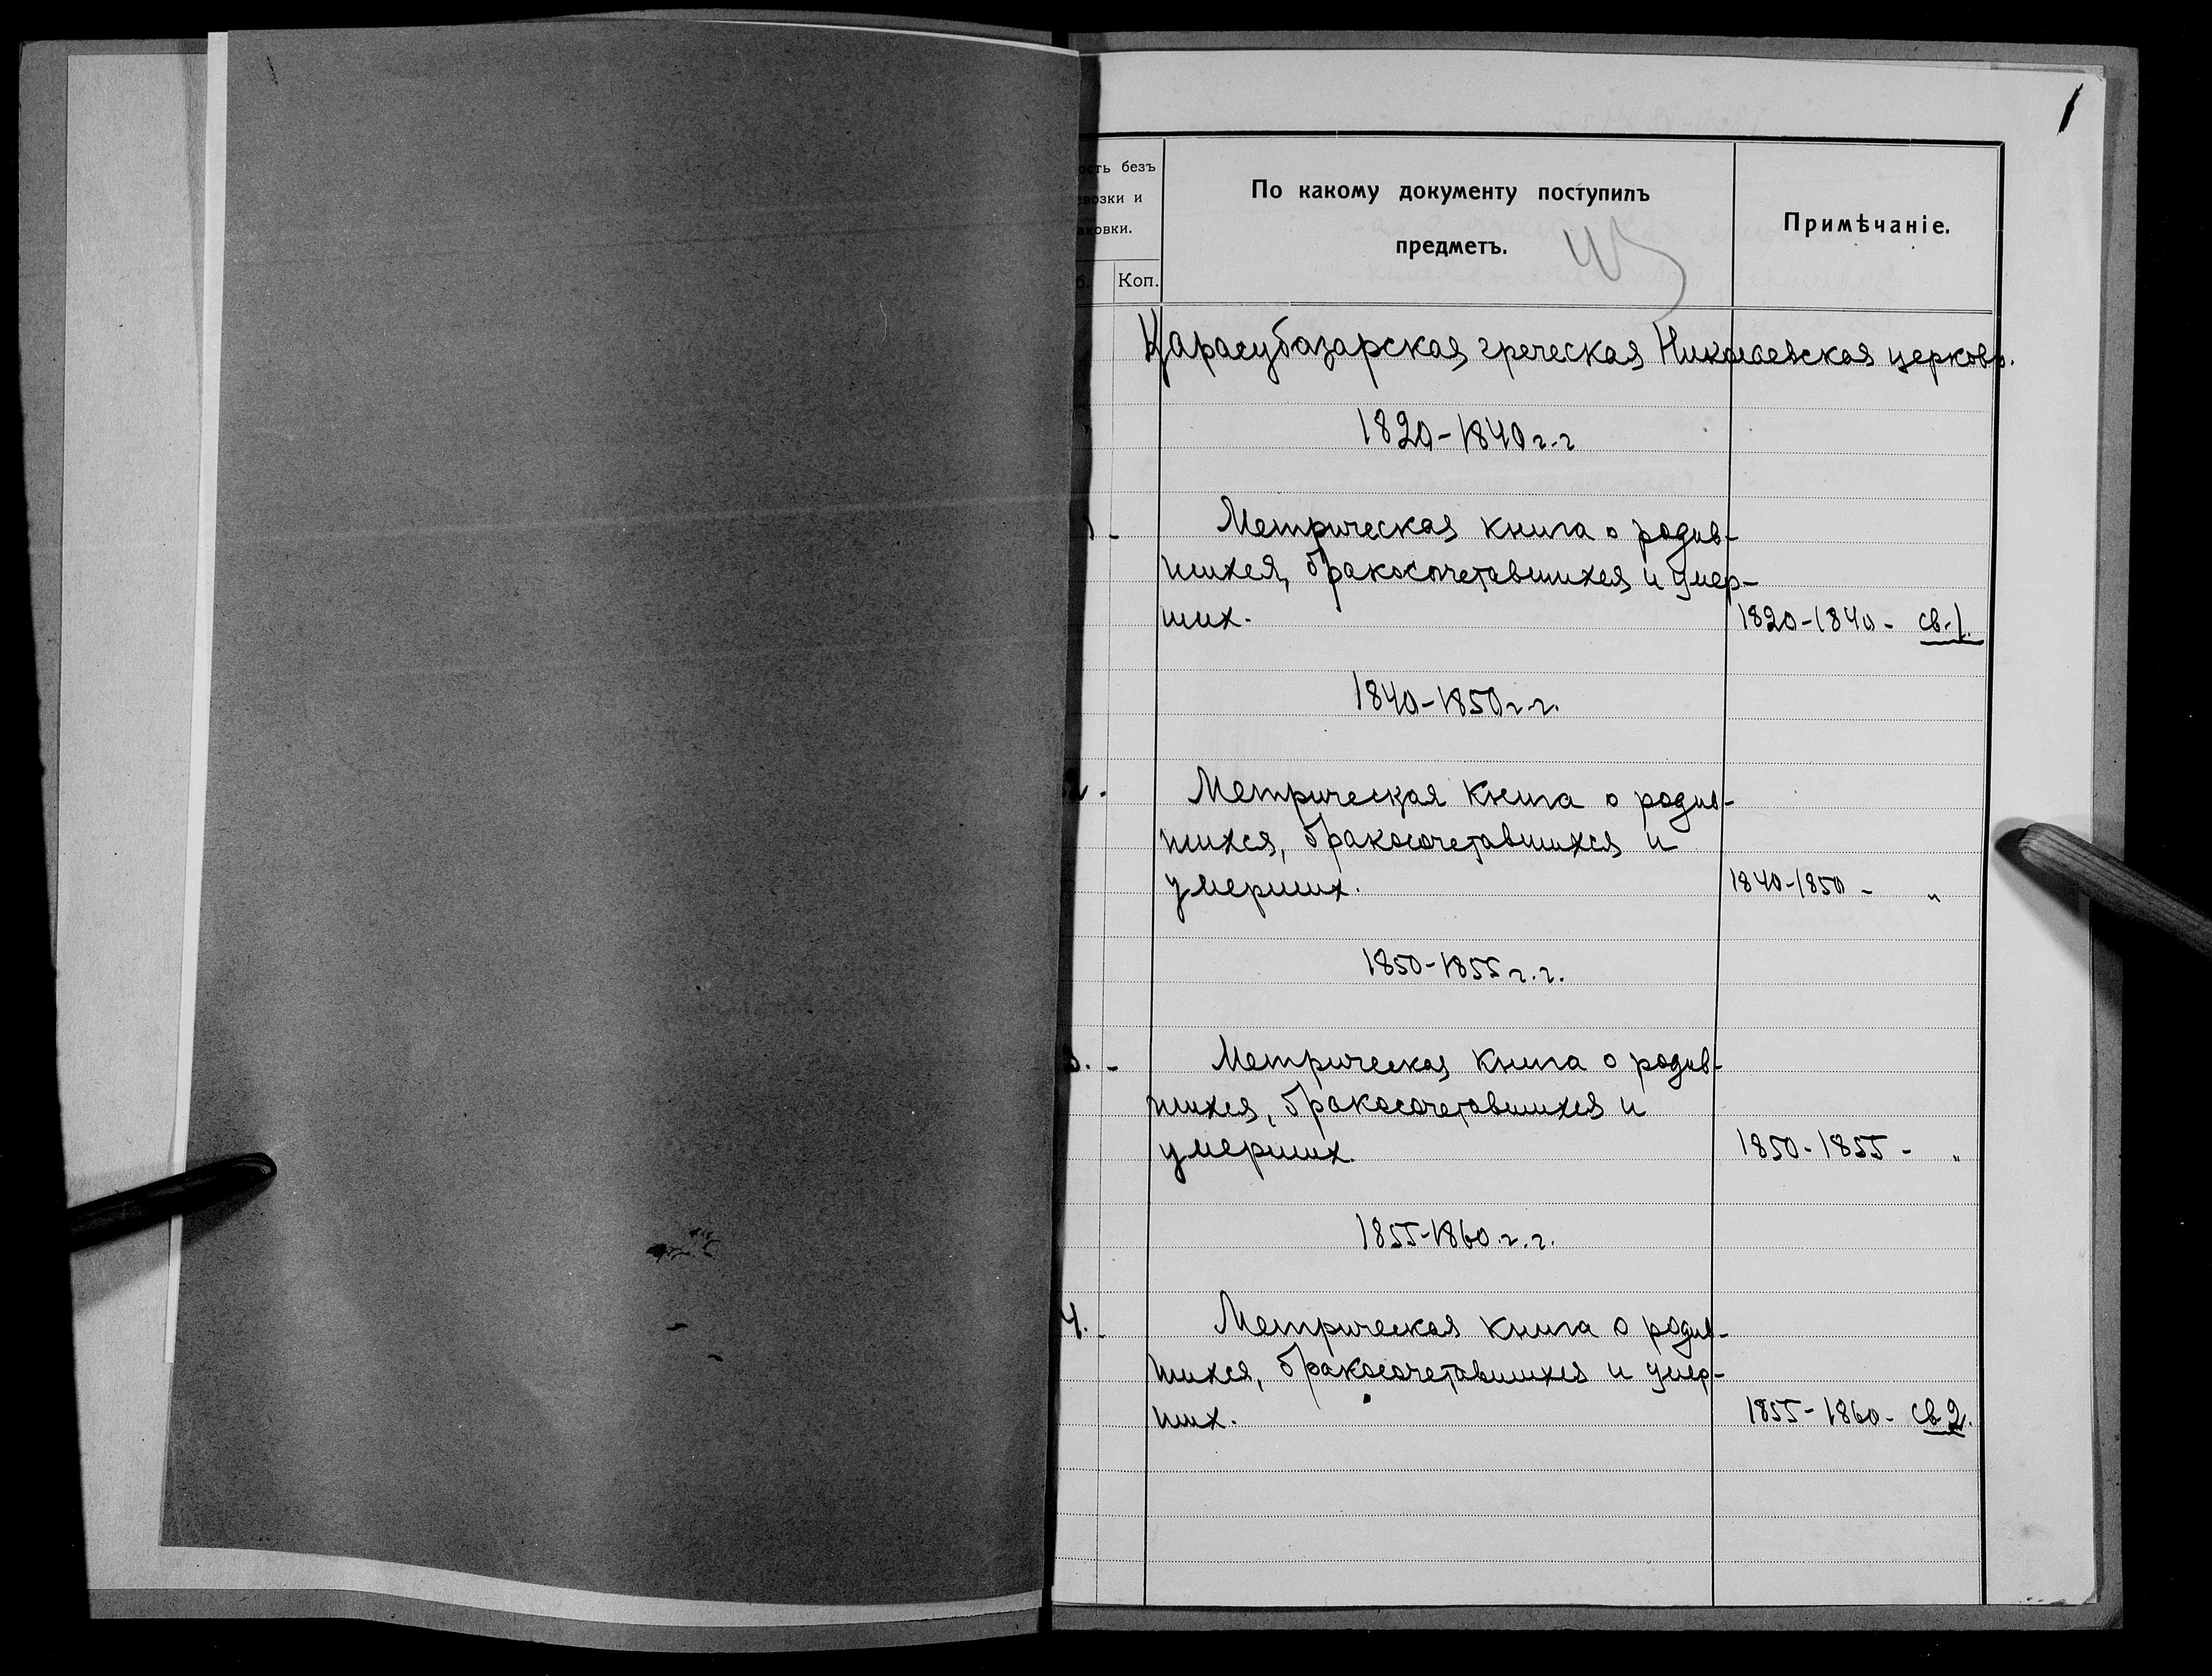 1
ость безъ
евозки и
аковки.
б. Коп.
По какому документу поступилъ
предметъ.
Примѣчаніе.
Карасубазарская греческая Николаевская церковь.
1820-1840 г.г
1. -
Метрическая книга о родив-
шихся, бракосочетавшихся и умер-
ших.
1820-1840 - св. 1.
1840-1850 г.г.
2.
Метрическая книга о родив-
шихся, бракосочетавшихся и
умерших.
1840-1850 - "
1850-1855 г.г.
3. -
Метрическая книга о родив-
шихся, бракосочетавшихся и
умерших.
1850-1855 - "
1855-1860 г.г.
4. -
Метрическая книга о родив-
шихся, бракосочетавшихся и умер-
ших.
1855-1860 - св 2.